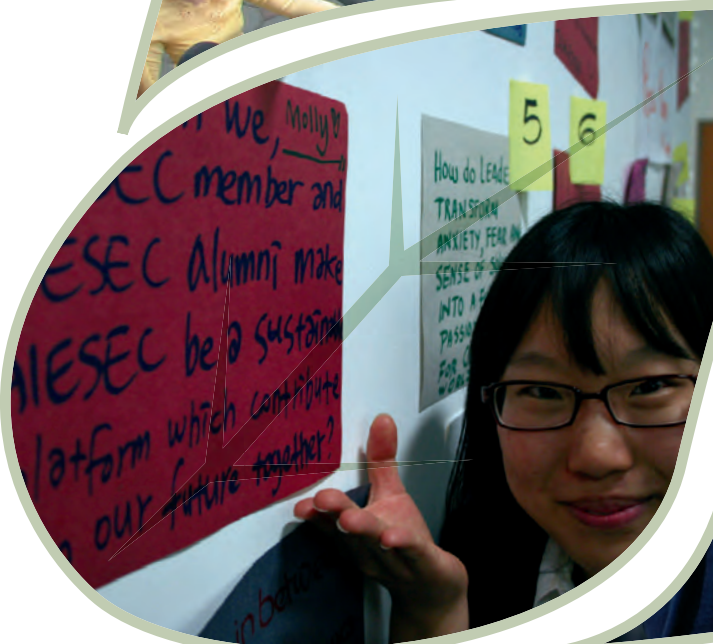 we, Molly
member and
alumni make
AIESEC be a sustain
platform which contribute
our future together?
5
6
HOW do LEADE
TRANSFORM
ANXIETY, FEAR
SENSE OF
INTO A
PASSIO
FOR
in between